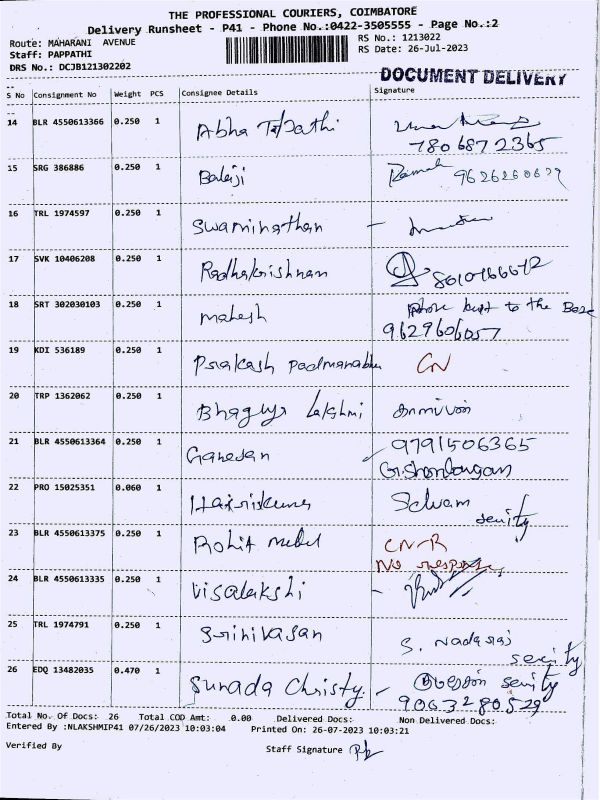 THE PROFESSIONAL COURIERS, COIMBATORE
Delivery Runsheet - P41 - Phone No.:0422-3505555 - Page No.:2
Route: MAHARANI AVENUE
Staff: PAPPATHI
DRS No.: DCJB121302202
RS No.: 1213022
RS Date: 26-Jul-2023
DOCUMENT DELIVERY
S No Consignment No Weight PCS Consignee Details Signature
14 BLR 4550613366 0.250 1 Abha
7806872365
15 SRG 386886 0.250 1 Balaji 
16 TRL 1974597 0.250 1 Swaminathan
17 SVK 10406208 0.250 1 Radhakrishnan
18 SRT 302030103 0.250 1 Mahesh kept to the
9629606057
19 KDI 536189 0.250 1 Prakash Padmanabhan CN
20 TRP 1362062 0.250 1 Lakshmi
21 BLR 4550613364 0.250 1 Ganesan 9791506365
22 PRO 15025351 0.060 1 Selvam
23 BLR 4550613375 0.250 1 Rohit CN-R
No response
24 BLR 4550613335 0.250 1 Visalakshi
25 TRL 1974791 0.250 1 Srinivasan S.
26 EDQ 13482035 0.470 1 Sunada Christy
9063280529
Total No. Of Docs: 26 Total COD Amt: 0.00 Delivered Docs: Non Delivered Docs:
Entered By :NLAKSHMIP41 07/26/2023 10:03:04 Printed On: 26-07-2023 10:03:21
Verified By Staff Signature